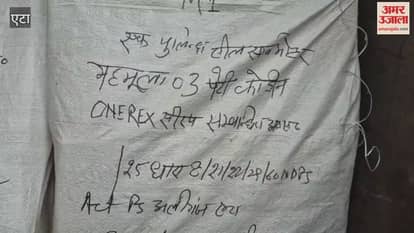 एटा
अमर उजाला
amarujala.com
M1
एक पुलिन्दा सील सर्वमोहर
03 पेटी कोडीन
ONEREX सीरप सम्बन्धित
/25 धारा 8/21/22/29/60 NDPS
Act PS अलीगंज एटा